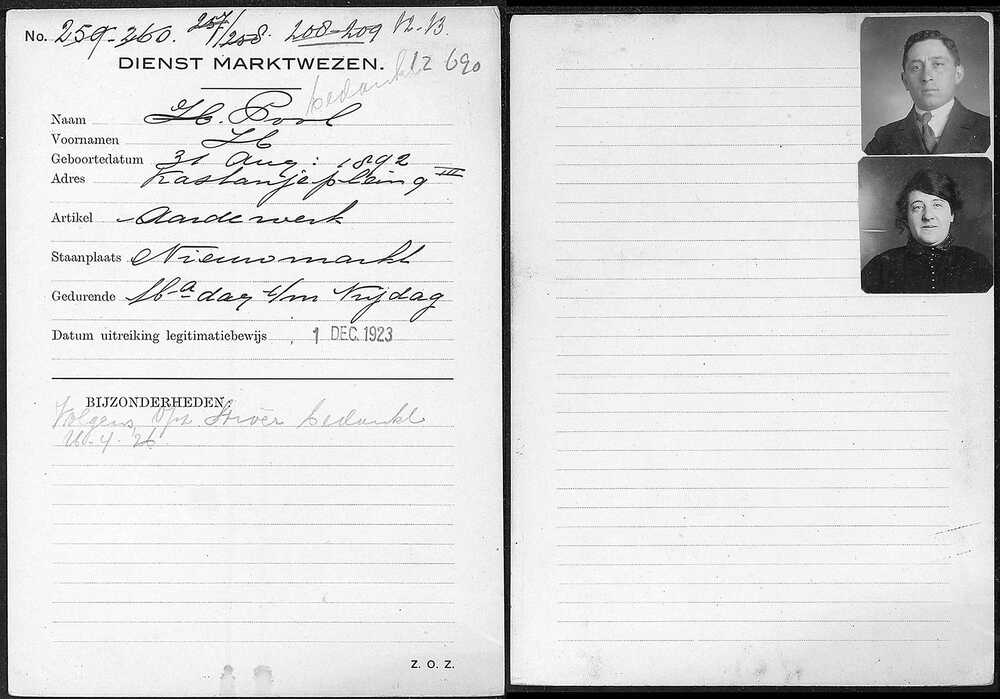 No. 259-260. 257/258. 208-209 12-13
DIENST MARKTWEZEN. 12 690
bedankt
Naam Pool
Voornamen
Geboortedatum 31 Aug: 1892
Adres Kastanjeplein 9 III
Artikel Aardewerk
Staanplaats Nieuwmarkt
Gedurende Ma-dag t/m Vrijdag
Datum uitreiking legitimatiebewijs 1 DEC. 1923
BIJZONDERHEDEN
Volgens Opz. bedankt
Z. O. Z.